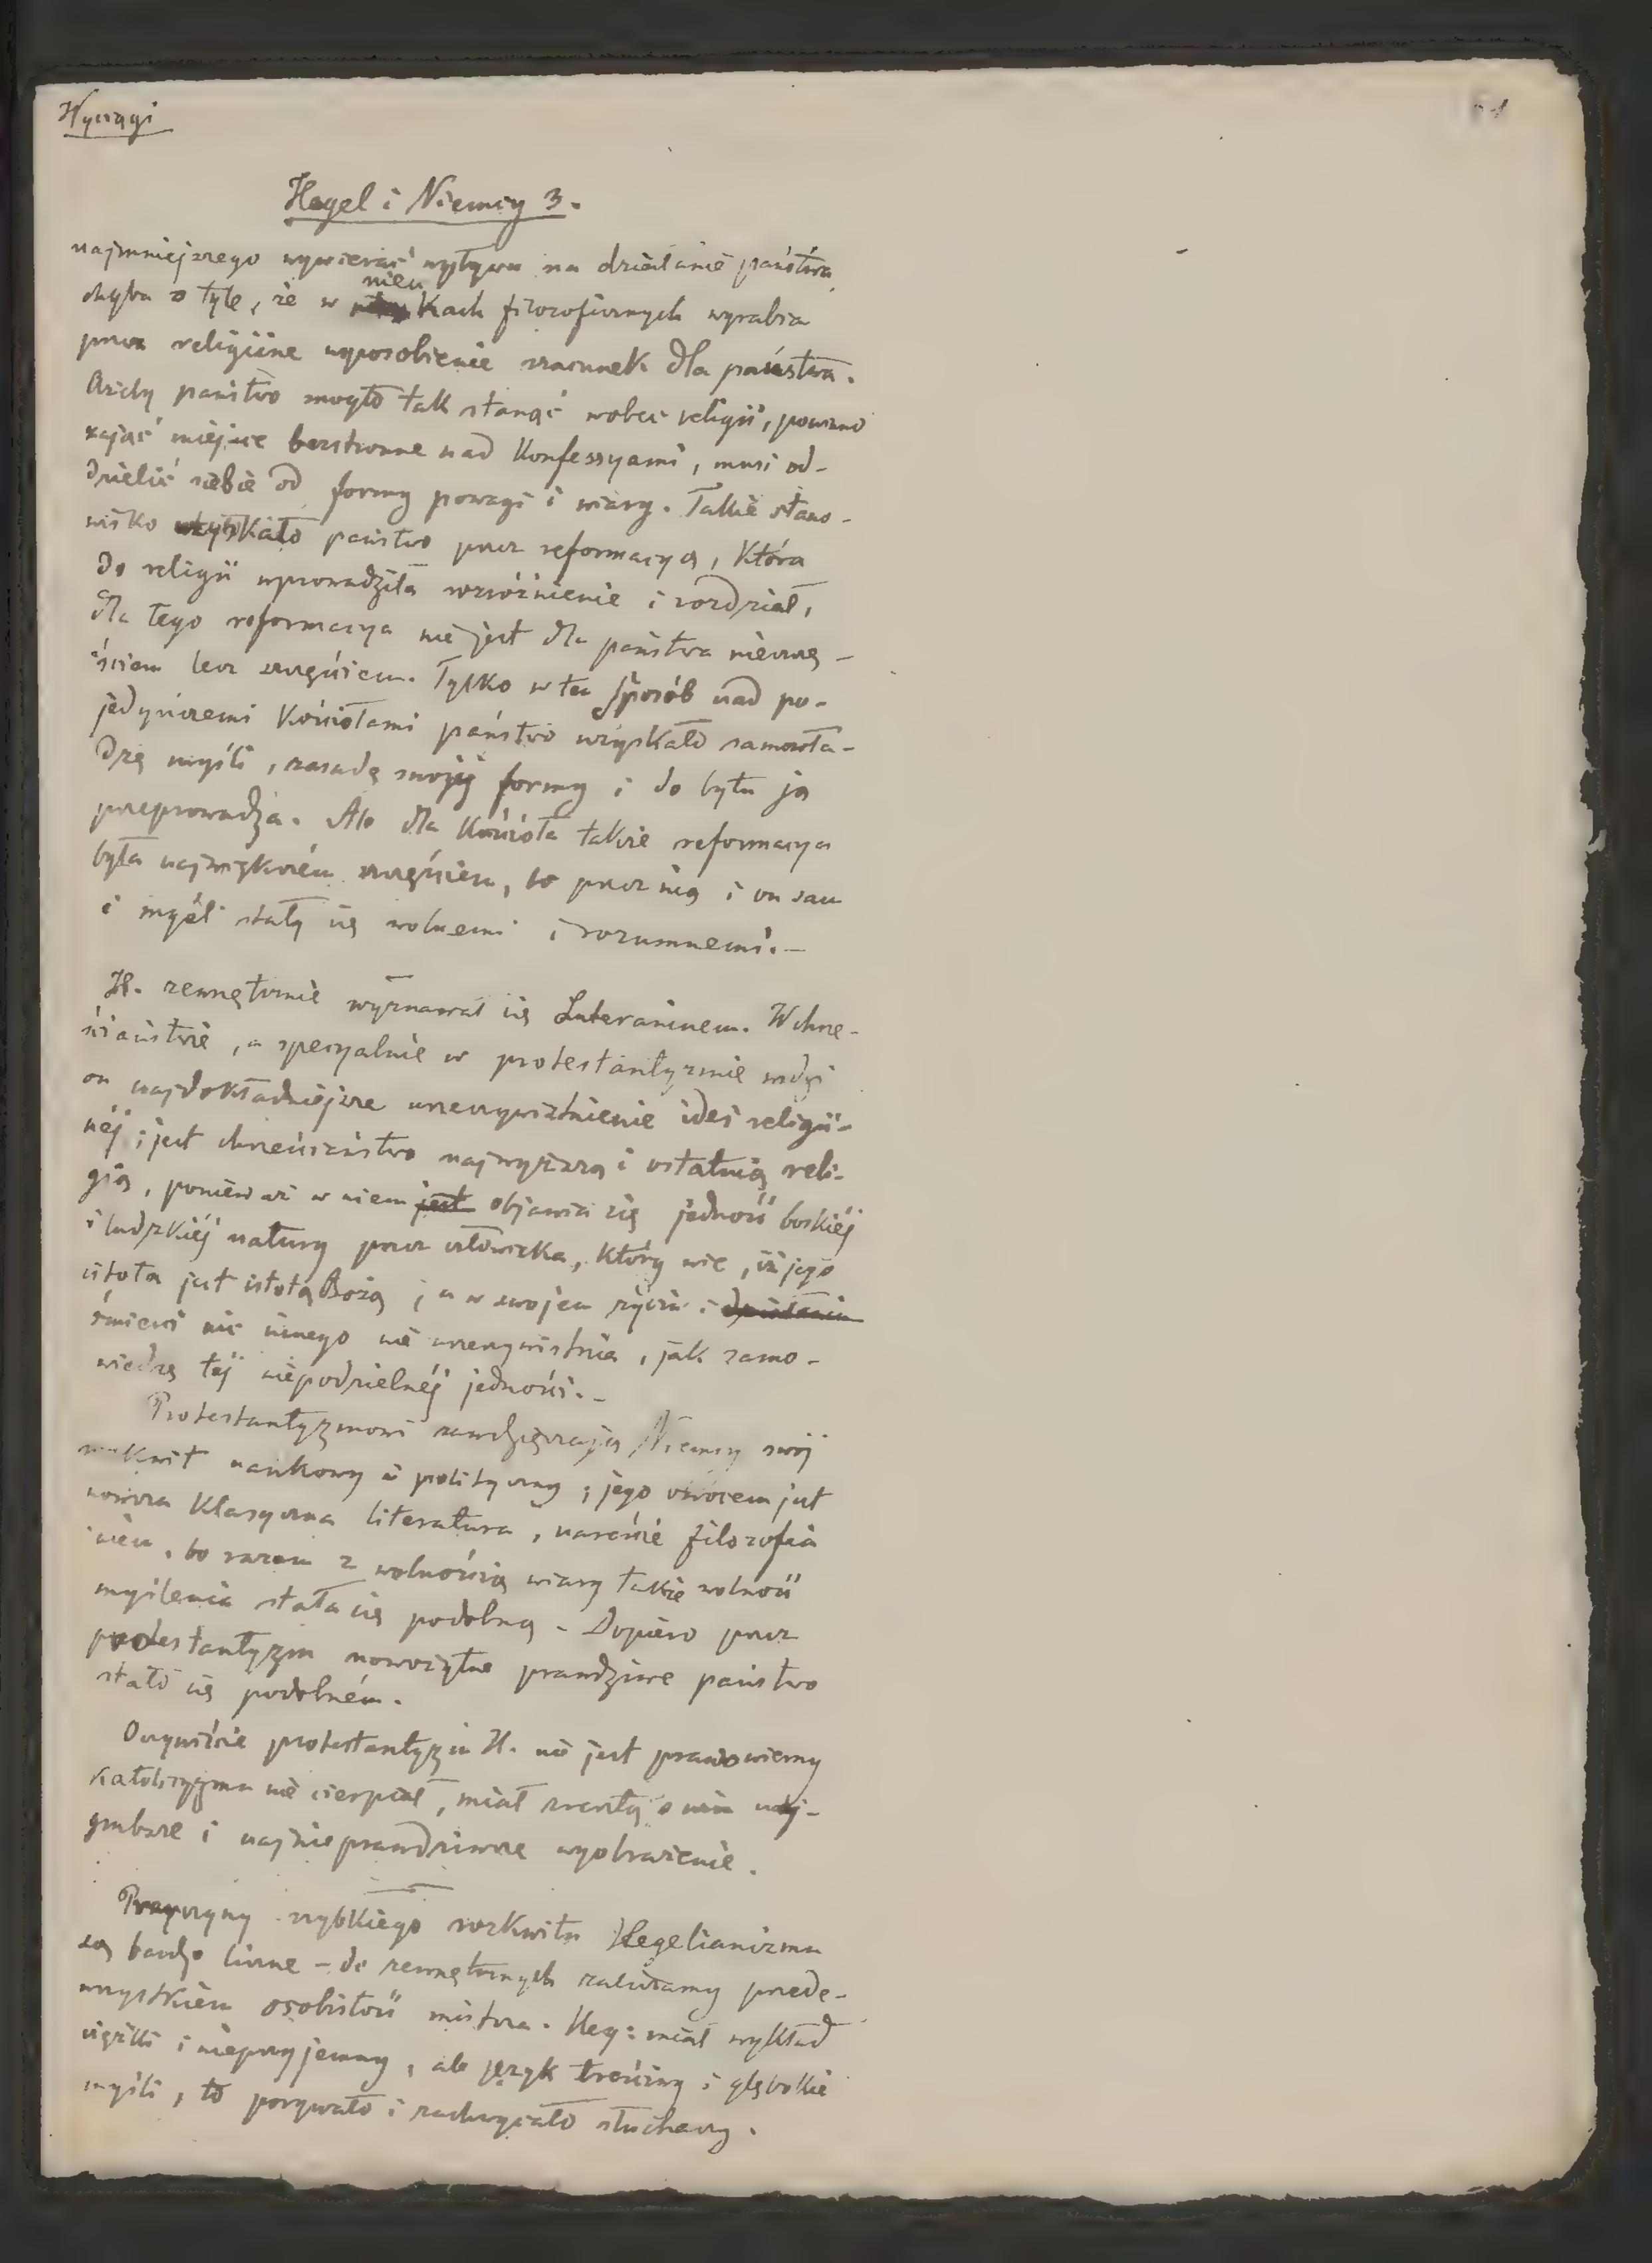 Wyciągi
Hegel i Niemcy 3.
najmniejszego wywierać wpływu na działanie państwa,
chyba o tyle, że w kach filozoficznych wyrabia
przez religiine usposobienie szacunek dla państwa.
Ażeby państwo mogło tak stanąć wobec religii, powinno
zająć miejsce bezstronne nad Konfessyami, musi od-
dzielić siebie od formy powagi i wiary. Takie stano-
wisko uzyskało państwo przez reformacyą, Która
do religii wprowadziła rozróżnienie i rozdział,
dla tego reformacya nie jest dla państwa nieszczę-
ściem lecz szczęściem. Tylko w ten sposób nad po-
jedyńczemi Kościołami państwo uzyskało samowła-
dzę myśli, zasadę swojéj formy i do bytu ją
przeprowadza. Ale dla Kościoła także reformacya
była największém szczęściem, bo przez nią i on sam
i myśl stały się wolnemi i rozumnemi. –
H. zewnętrznie wyznawał się Luteraninem. W chrze-
ściaństwie, a specyalnie w protestantyzmie widzi
on najdokładniejsze urzeczywistnienie idei religii-
néj; jest chrześciaństwo najwyższą i ostatnią reli-
gią, ponieważ w niem jest objawia się jedność boskiéj
i ludzkiéj natury przez człowieka, Który wie, iż jego
istota jest istotą Bożą i w swojem życiu i działaniu
śmierci nic innego nie urzeczywistnia, jak samo-
wiedzę téj niepodzielnéj jedności. –
Protestantyzmowi zawdzięczają Niemcy swój
rozkwit naukowy i polityczny; jego owocem jest
nowsza Klasyczna literatura, nareście filozofia
niem. bo razem z wolnością wiary także wolność
myślenia stała się podobną – Dopiero przez
protestantyzm nowożytne prawdziwe państwo
stało się podobném.
Oczywiście protestantyzm H. nie jest prawowierny
Katolicyzmu nie cierpiał, miał zresztą o nim naj-
grubsze i najnieprawdziwsze wyobrażenie.
Przyczyny szybkiego rozkwitu Hegelianizmu
są bardzo liczne – do zewnętrznych zaliczamy przede-
wszystkiem osobistość mistrza. Heg: miał wykład
ciężki i nieprzyjemny, ale język treściwy i głębokie
myśli, to porywało i zachwycało słuchaczy.